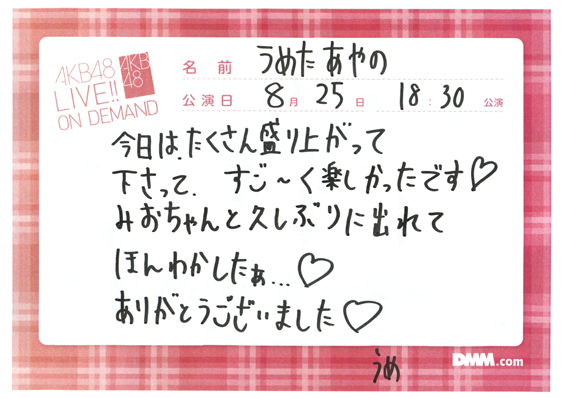 AKB48
LIVE!!
ON DEMAND
AKB
48
名前 うめたあやの
公演日 8月25日 18:30公演
今日は、たくさん盛り上がって
下さって、すご〜く楽しかったです♡
みおちゃんと久しぶりに出れて
ほんわかしたぁ...♡
ありがとうございました♡
うめ
DMM.com